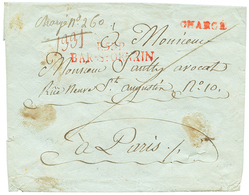 Chargé n° 260
CHARGÉ
P.99.P
BAR-SUR-ORNAIN
A Monsieur
Monsieur avocat
Rue Neuve St augustin N° 10.
à Paris